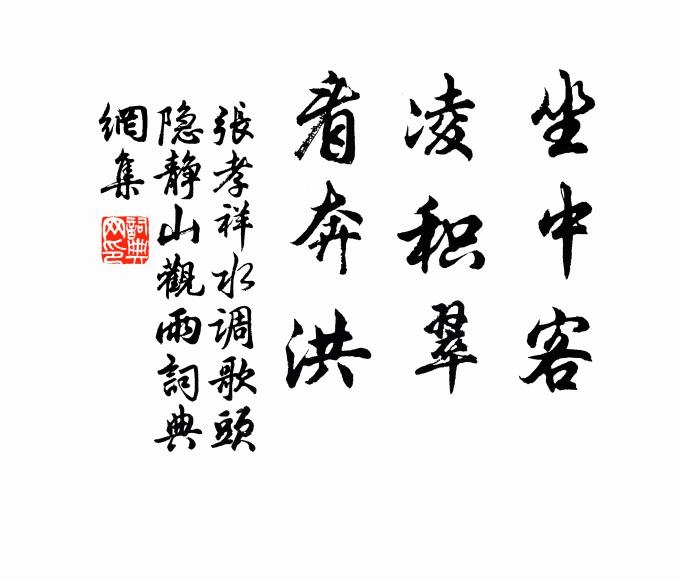 坐中客
凌积翠
看奔洪
張孝祥水调歌頭
隐静山觀雨詞典
網集
詞典
网印